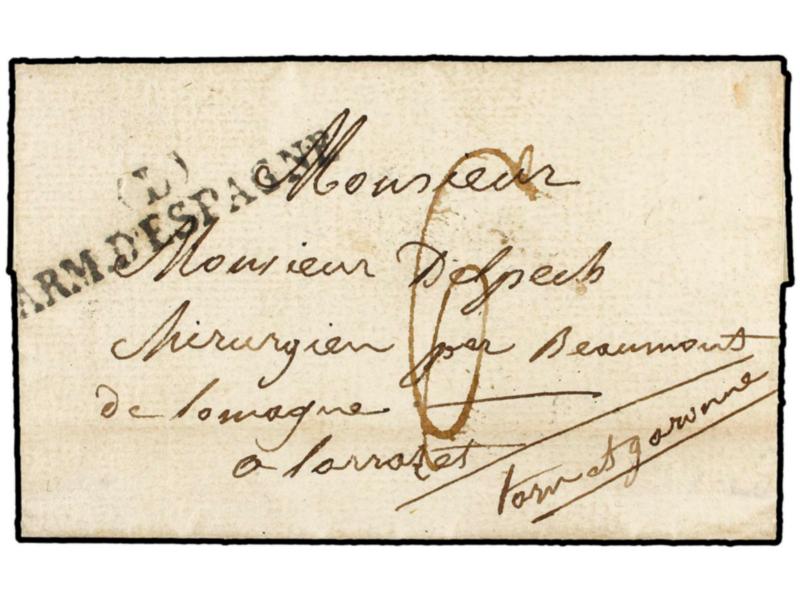 (L)
ARM. D'ESPAGNE
Monsieur
6
Monsieur Delpech
chirurgien par Beaumont
de lomagne
a larrazet
tarn et garonne